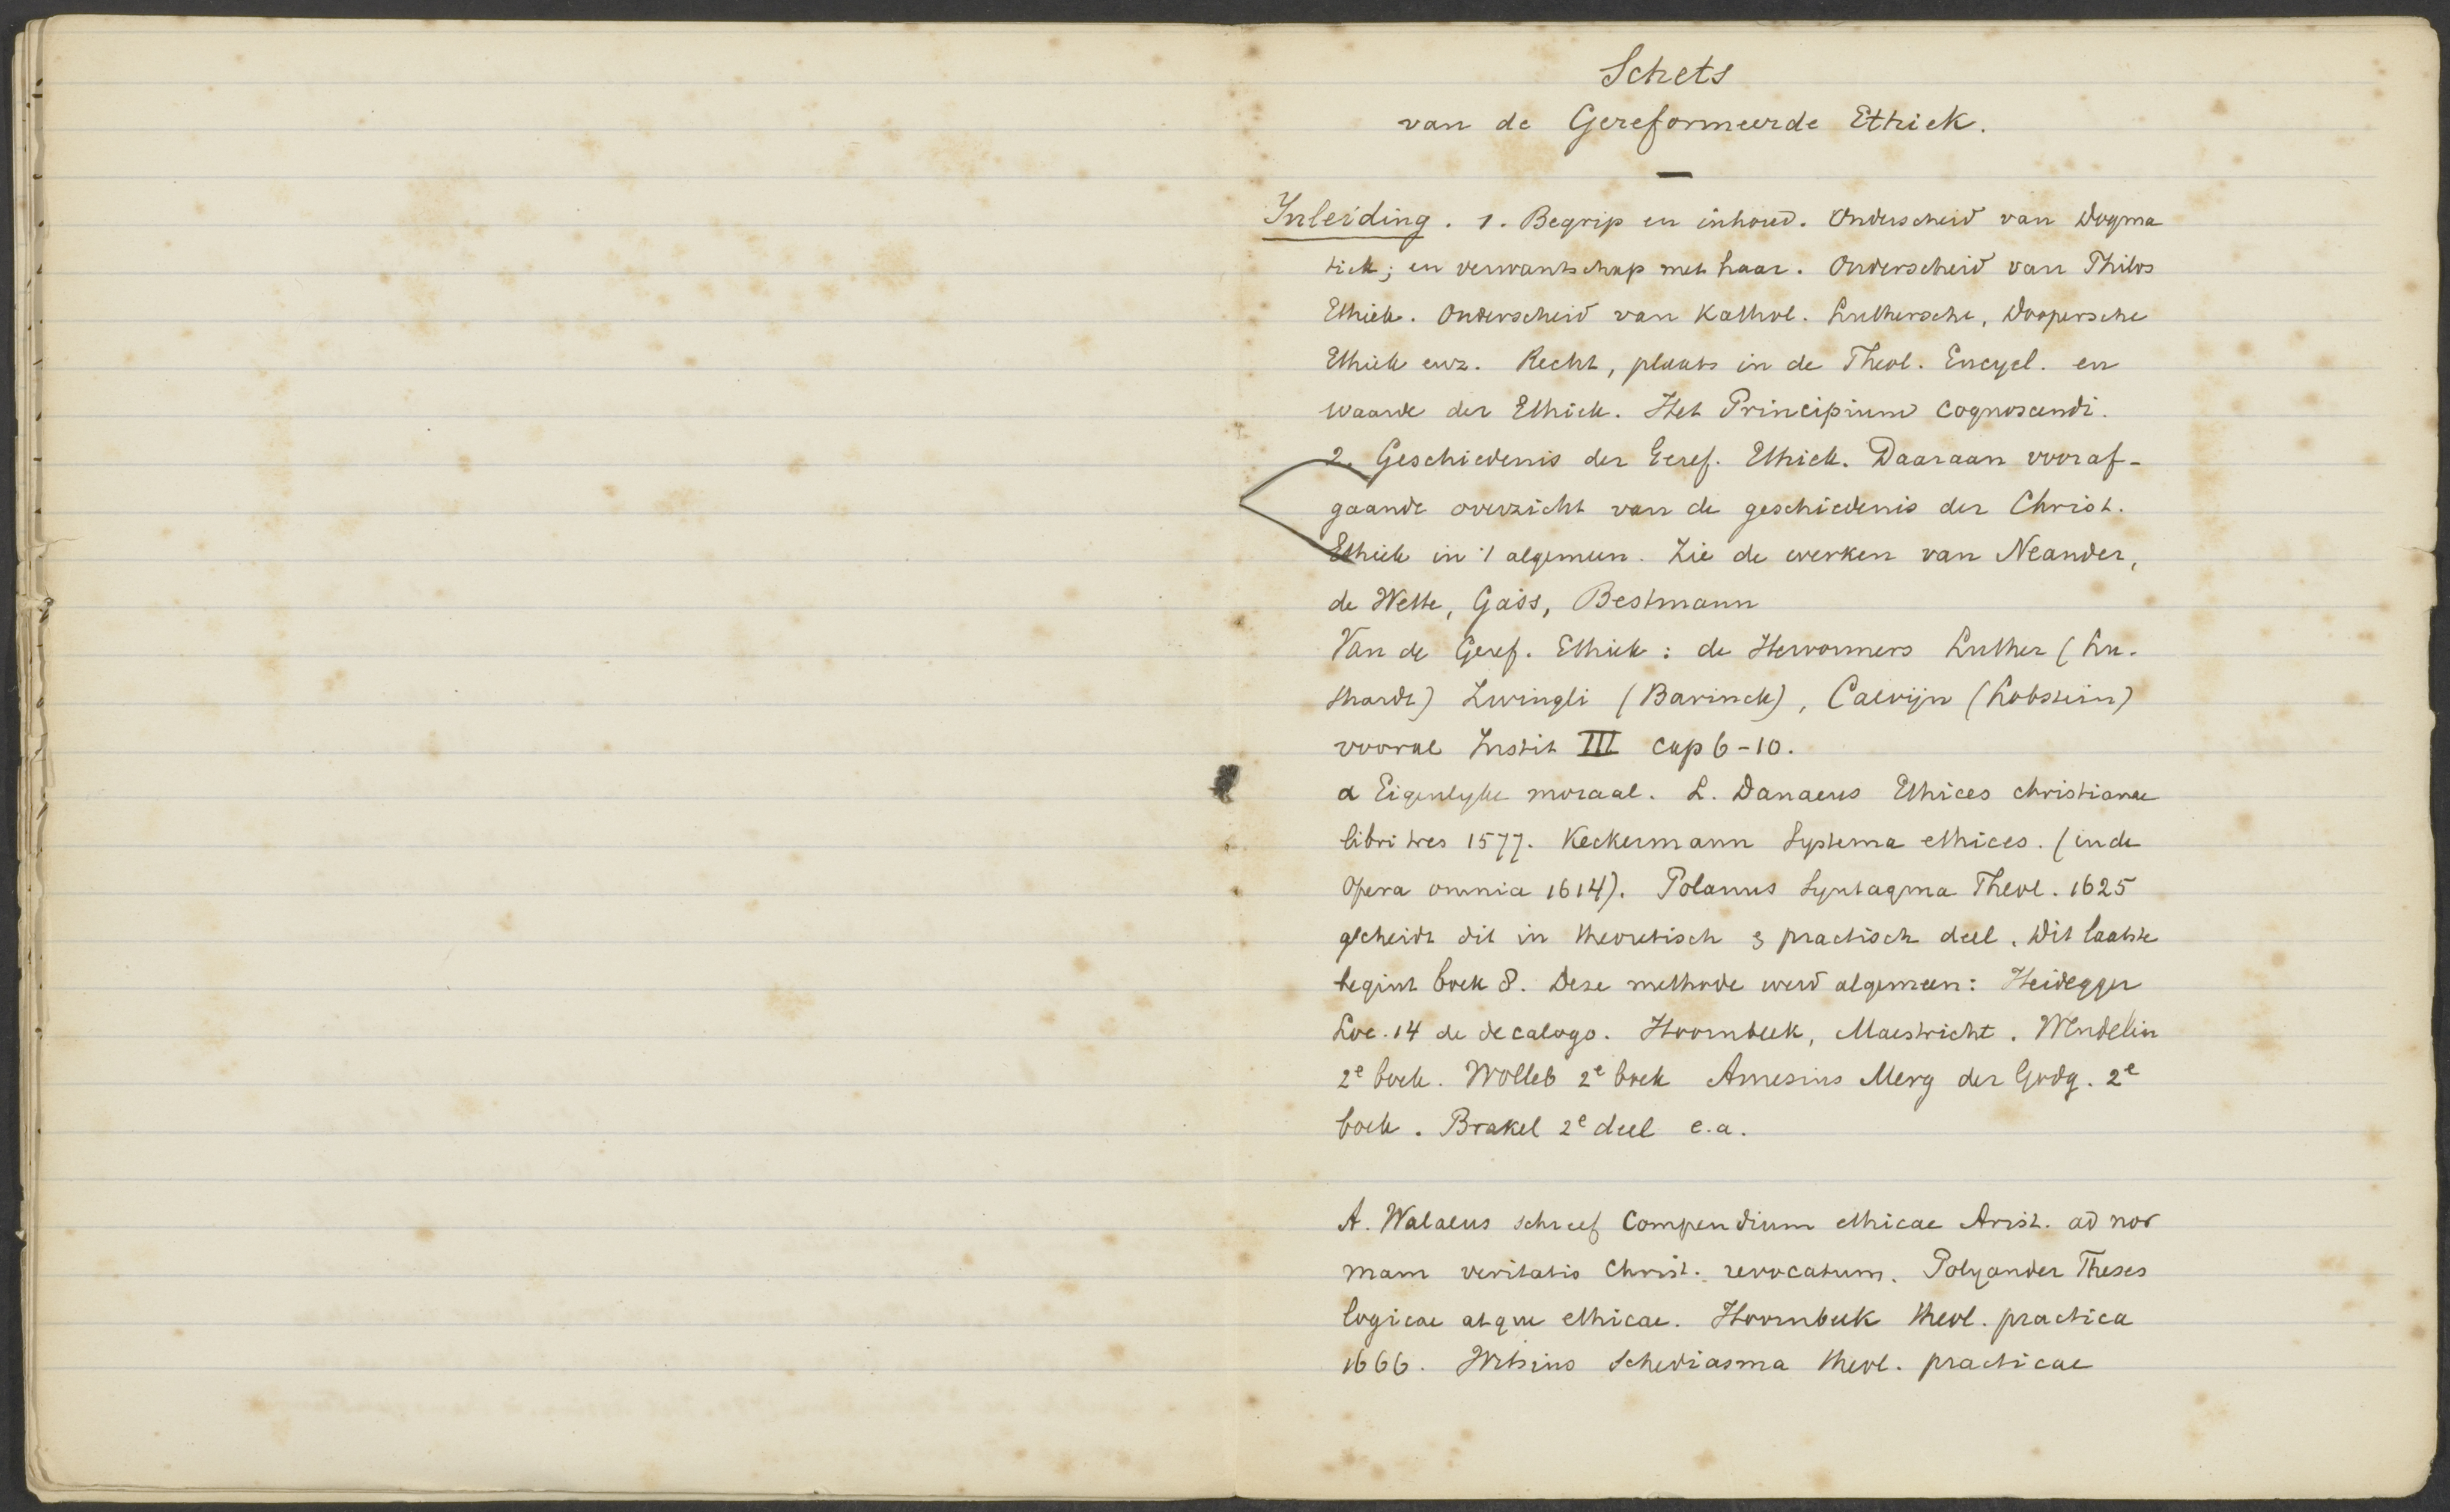 Schets
van de Gereformeerde Ethiek.
Inleiding. 1. Begrip en inhoud. Onderscheid van Dogma
tiek; en verwantschap met haar. Onderscheid van Philos
Ethiek. Onderscheid van Kathol. Luthersche, Doopersche
Ethiek enz. Recht, plaats in de Theol. Encycl. en
waarde der Ethiek. Het Principium cognoscendi.
2. Geschiedenis der Geref. Ethiek. Daaraan vooraf-
gaande overzicht van de geschiedenis der Christ.
Ethiek in 't algemeen. Zie de werken van Neander,
de Wette, Gass, Bestmann
Van de Geref. Ethiek: de Hervormers Luther (Lu-
thardt) Zwingli (Bavinck), Calvijn (Lobstein)
vooral Instit III cap 6-10.
a Eigenlyke moraal. L. Danaeus Ethices christianae
libri tres 1577. Keckermann Systema ethices. (in de
Opera omnia 1614). Polanus Syntagma Theol. 1625
scheidt dit in theoretisch & practisch deel. Dit laatste
begint boek 8. Deze methode werd algemeen: Heidegger
Loc. 14 de decalogo. Hoornbeek, Maestricht. Wendelin
2e boek. Wolleb 2e boek Amesius Merg der Godg. 2e
boek. Brakel 2e deel e.a.
A. Walaeus schreef Compendium ethicae Arist. ad nor
mam veritatis Christ. revocatum. Polyander Theses
logicae atque ethicae. Hoornbeek theol. practica
1666. Witsius Schediasma theol. practicae